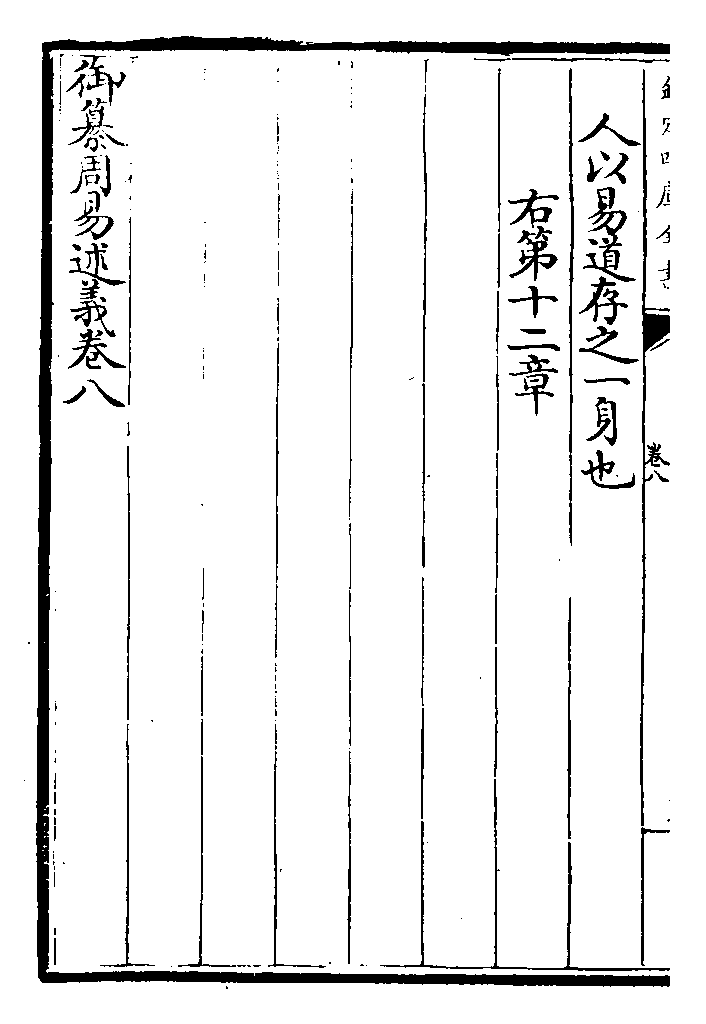 欽定四庫全書
卷八
人以易道存之一身也
右第十二章
御纂周易述義卷八